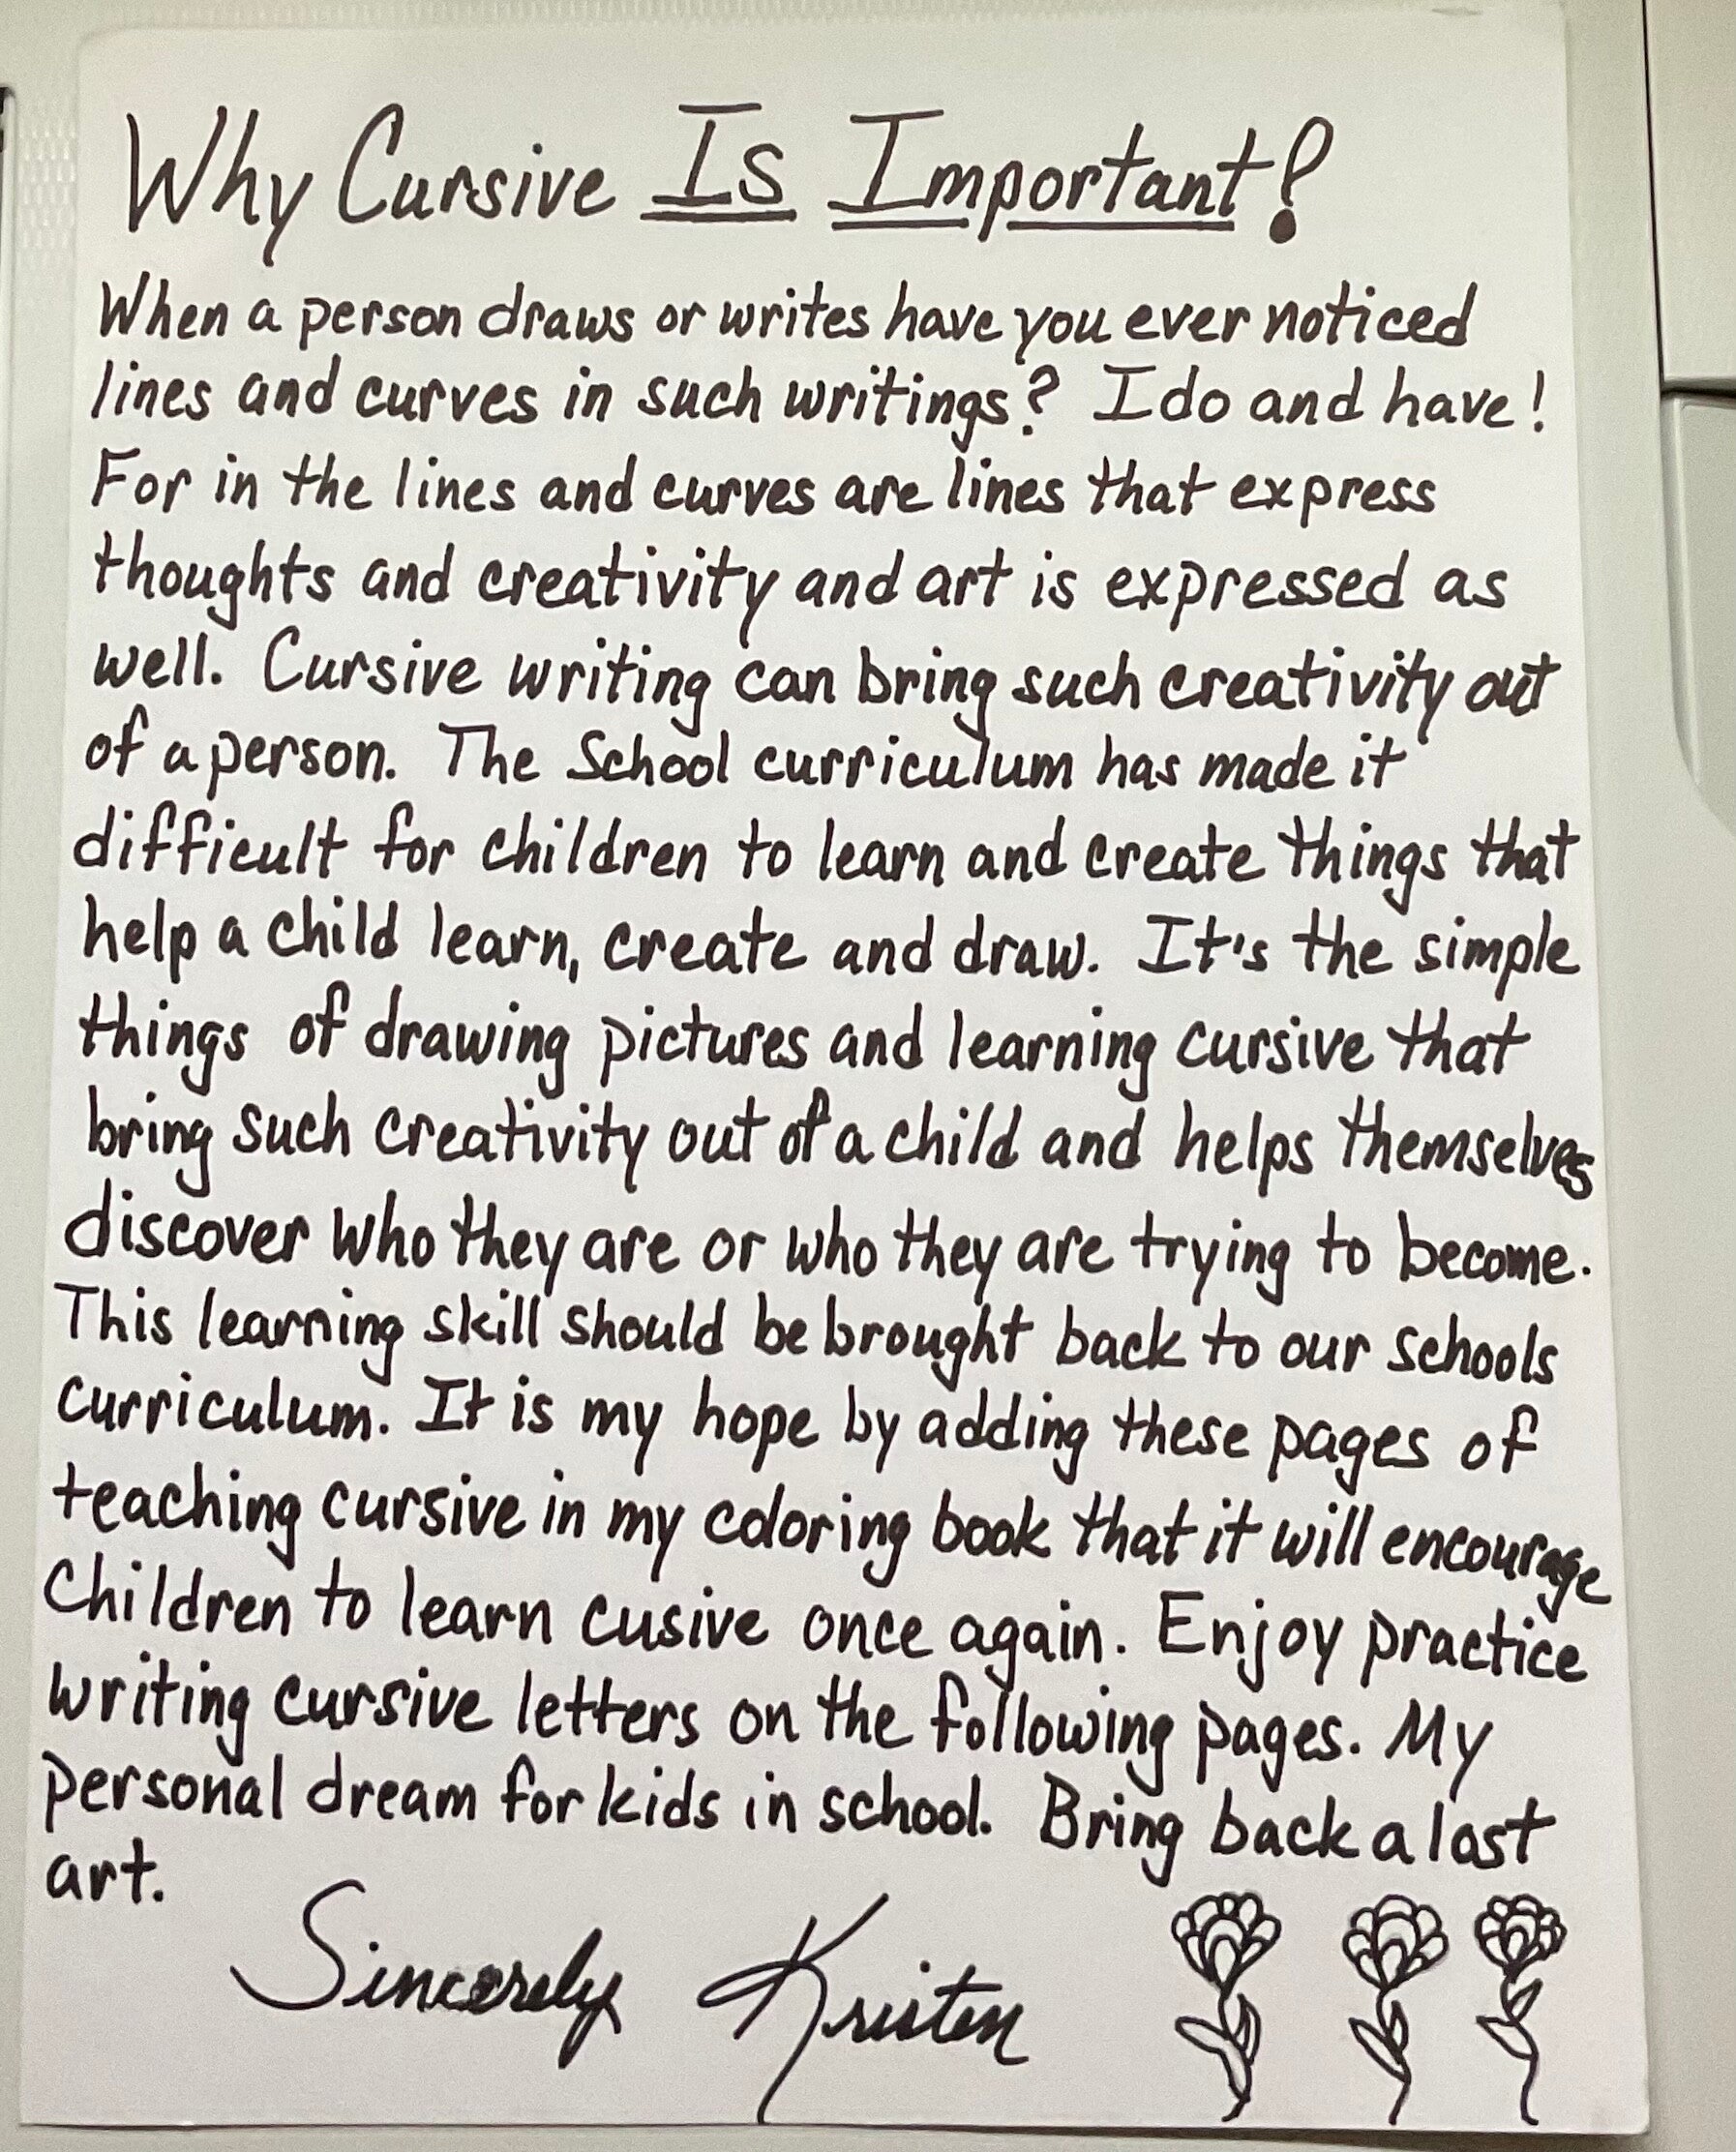 Why Cursive Is Important?
When a person draws or writes have you ever noticed
lines and curves in such writings? I do and have!
For in the lines and curves are lines that express
thoughts and creativity and art is expressed as
well. Cursive writing can bring such creativity out
of a person. The School curriculum has made it
difficult for children to learn and create things that
help a child learn, create and draw. It's the simple
things of drawing pictures and learning cursive that
bring such creativity out of a child and helps themselves
discover who they are or who they are trying to become.
This learning skill should be brought back to our schools
curriculum. It is my hope by adding these pages of
teaching cursive in my coloring book that it will encourage
Children to learn cusive once again. Enjoy practice
writing cursive letters on the following pages. My
personal dream for kids in school. Bring back a lost
art.
Sincerely Kristen